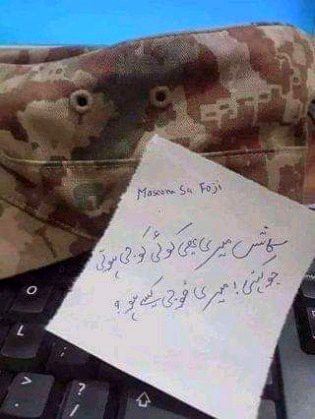 Masoom Sa Foji
کاش میری بھی کوئی ہوتی
جو کہتی! میری فوجی کیسے ہو ؟
O
L
>
?
/